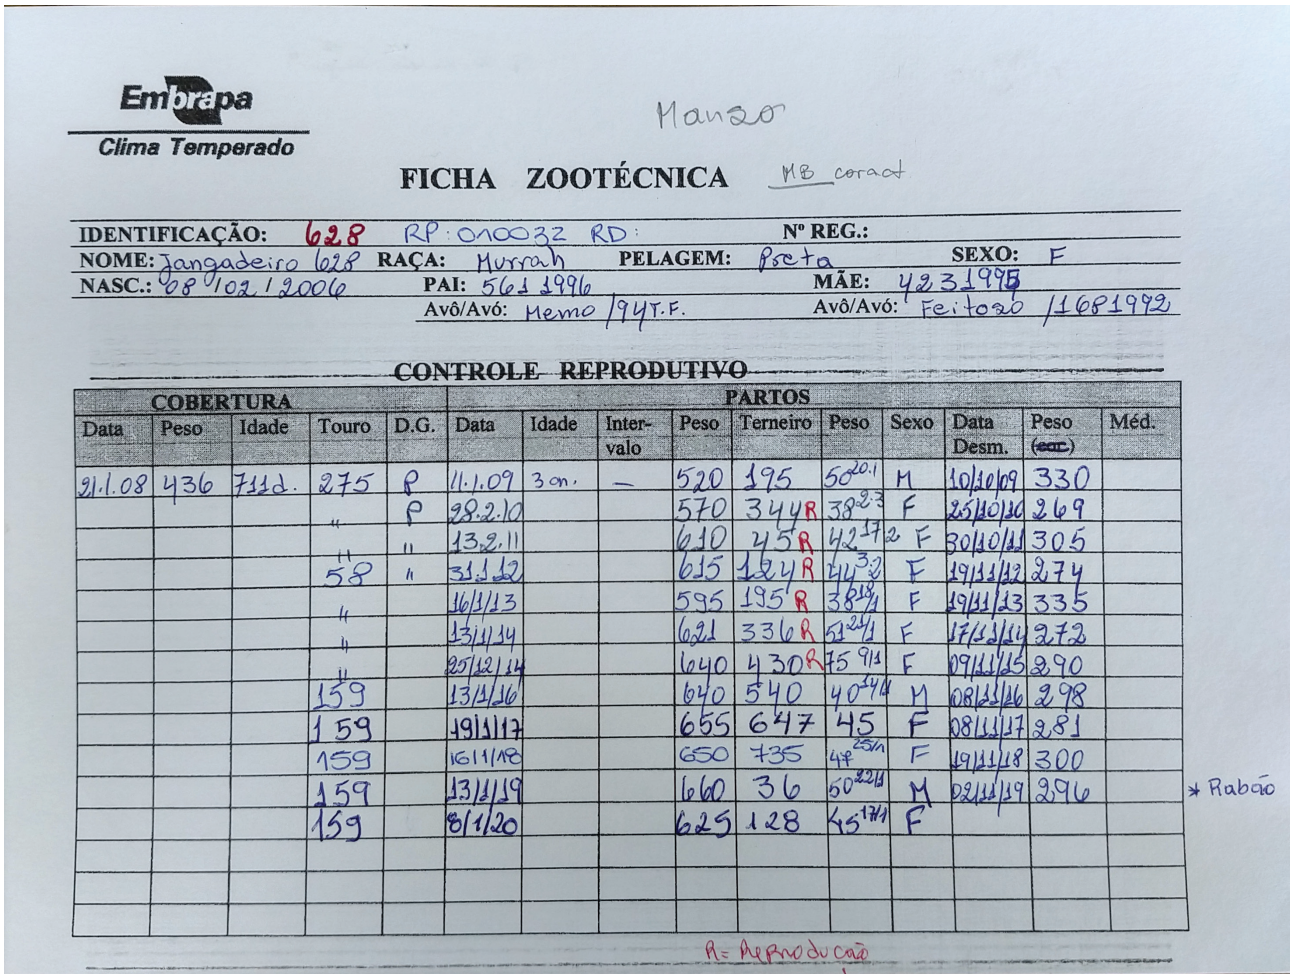 Embrapa
Clima Temperado
Manso
FICHA ZOOTÉCNICA MB caract
IDENTIFICAÇÃO: 628 RP: 010032 RD: Nº REG.:
NOME: Jangadeiro 628 RAÇA: Murrah PELAGEM: Preta SEXO: F
NASC.: 08/02/2006 PAI: 561 1996 MÃE: 423 1995
Avô/Avó: Memo /94T.F. Avô/Avó: Feitoso /1681992
CONTROLE REPRODUTIVO
COBERTURA PARTOS
Data Peso Idade Touro D.G. Data Idade Inter- Peso Terneiro Peso Sexo Data Peso Méd.
valo Desm.
21.1.08 436 711d. 275 P 11.1.09 3 an. — 520 195 50 20.1 M 10/10/09 330
" P 28.2.10 570 344 R 38 2.3 F 25/10/10 269
" " 13.2.11 610 45 R 42 17 2 F 30/10/11 305
58 " 31.1.12 615 124 R 44 3.2 F 19/11/12 274
" 16/1/13 595 195 R 38 F 19/11/13 335
" 13/1/14 621 336 R 51 21/1 F 17/11/14 272
" 25/12/14 640 430 R 75 9/1 F 09/11/15 290
159 13/1/16 640 540 40 14/1 M 08/11/16 298
159 19/1/17 655 647 45 F 08/11/17 281
159 16/1/18 650 735 47 25/1 F 19/11/18 300
159 13/1/19 660 36 50 22/1 M 02/11/19 296 * Rabão
159 8/1/20 625 128 45 17/1 F
R= Reprodução